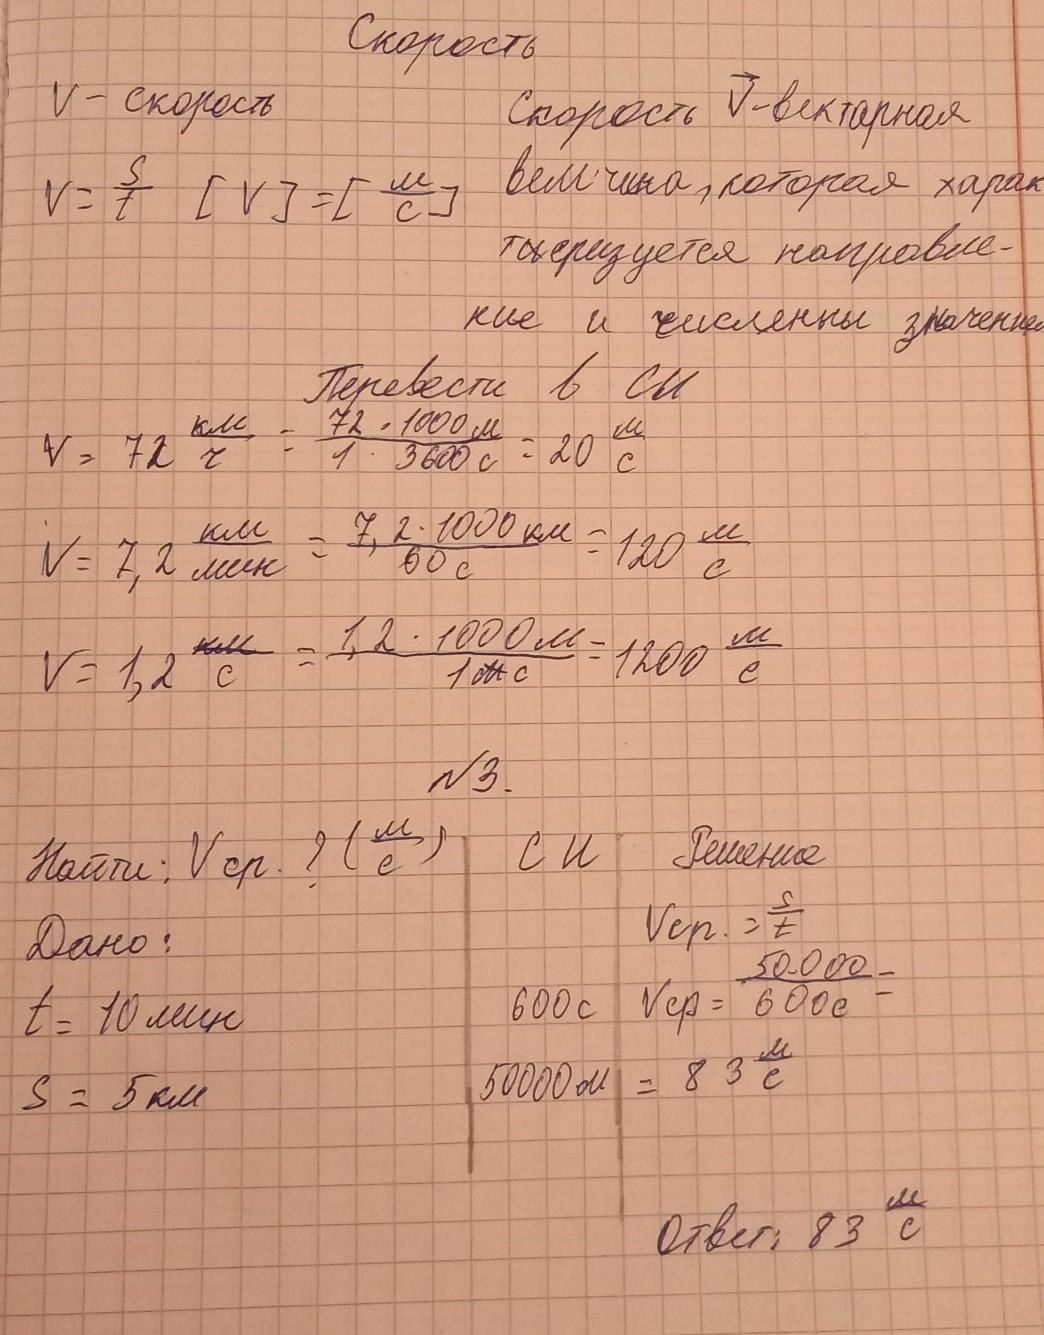 Скорость
V - скорость
V = S/t [V] = [м/с]
Скорость V⃗ - вектарная
величина, которая харак
теризуется направле-
ние и численны значением
Перевести в СИ
V = 72 км/ч = 72 · 1000 м / 1 · 3600 с = 20 м/с
V = 7,2 км/мин = 7,2 · 1000 км / 60 с = 120 м/с
V = 1,2 км/с = 1,2 · 1000 м / 1 с = 1200 м/с
№3.
Найти: Vср. ? (м/с)
Дано:
t = 10 мин
S = 5 км
СИ
600 с
50000 м
Решение
Vср. = S/t
Vср = 50.000 / 600 с =
= 83 м/с
Ответ: 83 м/с